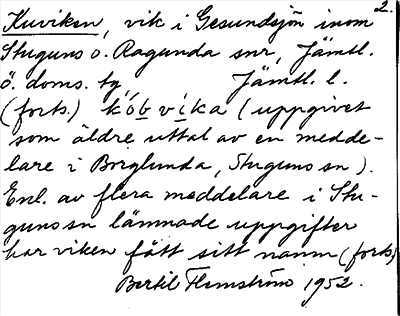 2.
Kuviken, vik i Gesundsjön inom
Stuguns o. Ragunda snr, Jämtl.
ö. doms. tg Jämtl. l.
(forts.) kób víka (uppgivet
som äldre uttal av en medde-
lare i Borglunda, Stuguns sn).
Enl. av flera meddelare i Stu-
guns sn lämnade uppgifter
har viken fått sitt namn (forts)
Bertil Flemström 1952.